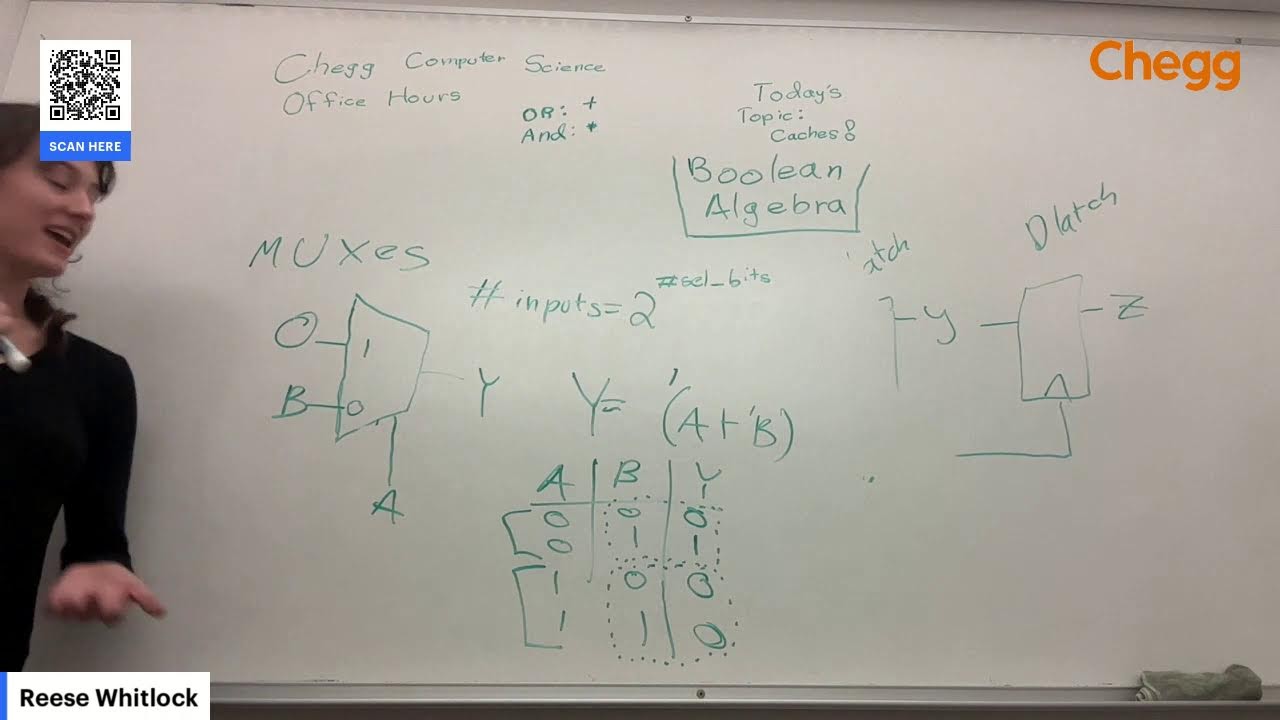 SCAN HERE
Chegg
Chegg Computer Science
Office Hours
OR: +
And: *
Today's
Topic:
Caches
Boolean
Algebra
MUXes
# inputs = 2^#sel_bits
0 1
B 0
A
Y
Y = '(A + 'B)
A B Y
0 0 0
0 1 1
1 0 0
1 1 0
atch
y
D latch
Z
Reese Whitlock